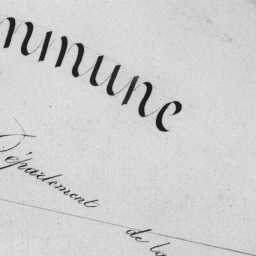 mmune
Département
de la